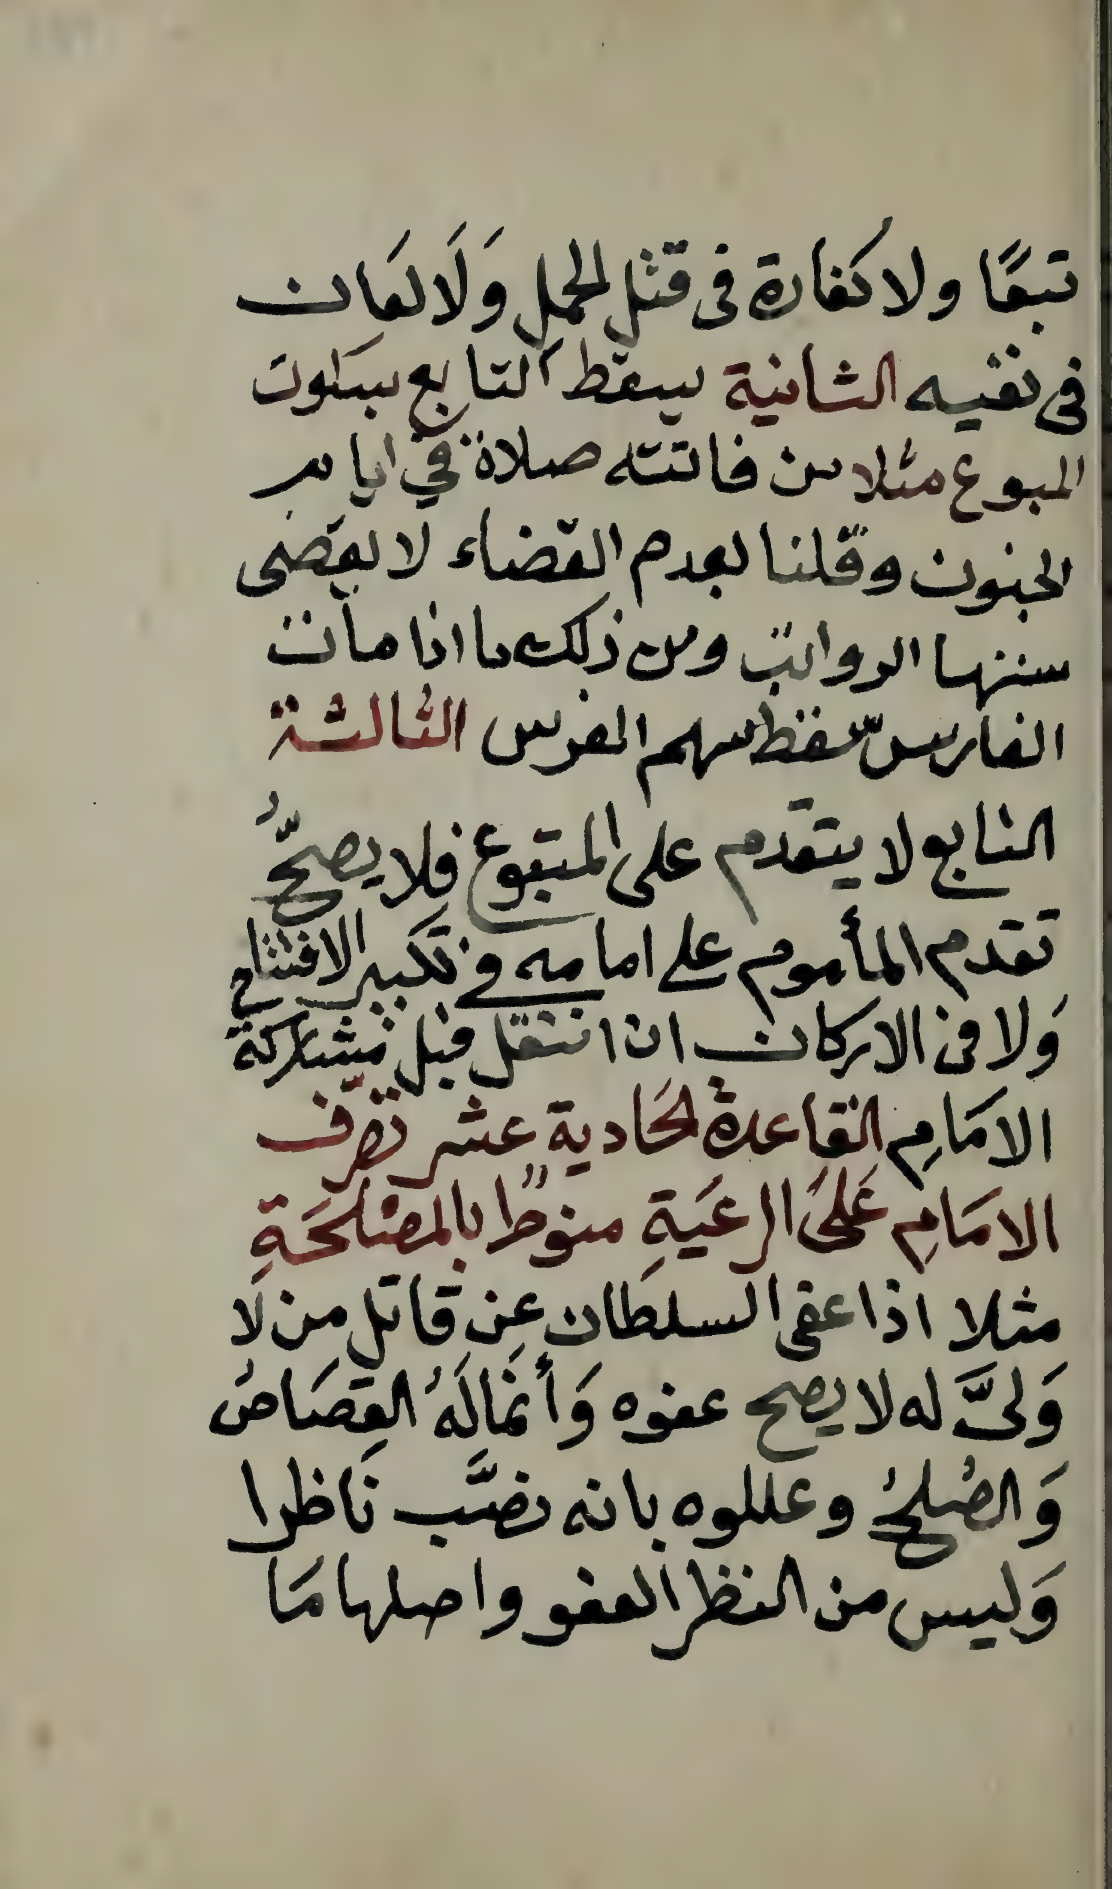 تبعًا ولا كفارة فى قتل الحمل وَلَا لعان
فى نفيه الثانية يسقط التابع بسقوت
المبوع مثلا من فاتته صلاة في ايام
الجنون وقلنا بعدم القضاء لا يقضى
سننها الرواتب ومن ذلك ما اذا مات
الفارس سقط سهم الفرس الثالثة
التابع لا يتقدم على المتبوع فلا يصحُّ
تقدم المأموم على امامه في تكبير الافتتاح
وَلا فى الاركان ان انتقل قبل مشاركة
الامَامِ القاعدة الحَادية عشر تصرّف
الامَامِ عَلَى الرعَيةِ منوطٌ بالمصْلحَةِ
مثلا اذا عفى السلطان عن قاتل من لَا
وَلىَّ له لا يصح عفوه وَأنمالَهُ القِصَاصُ
وَالصُلحُ وعللوه بانه نصَّب نَاظرا
وَليس من النظر العفو واصلها مَا